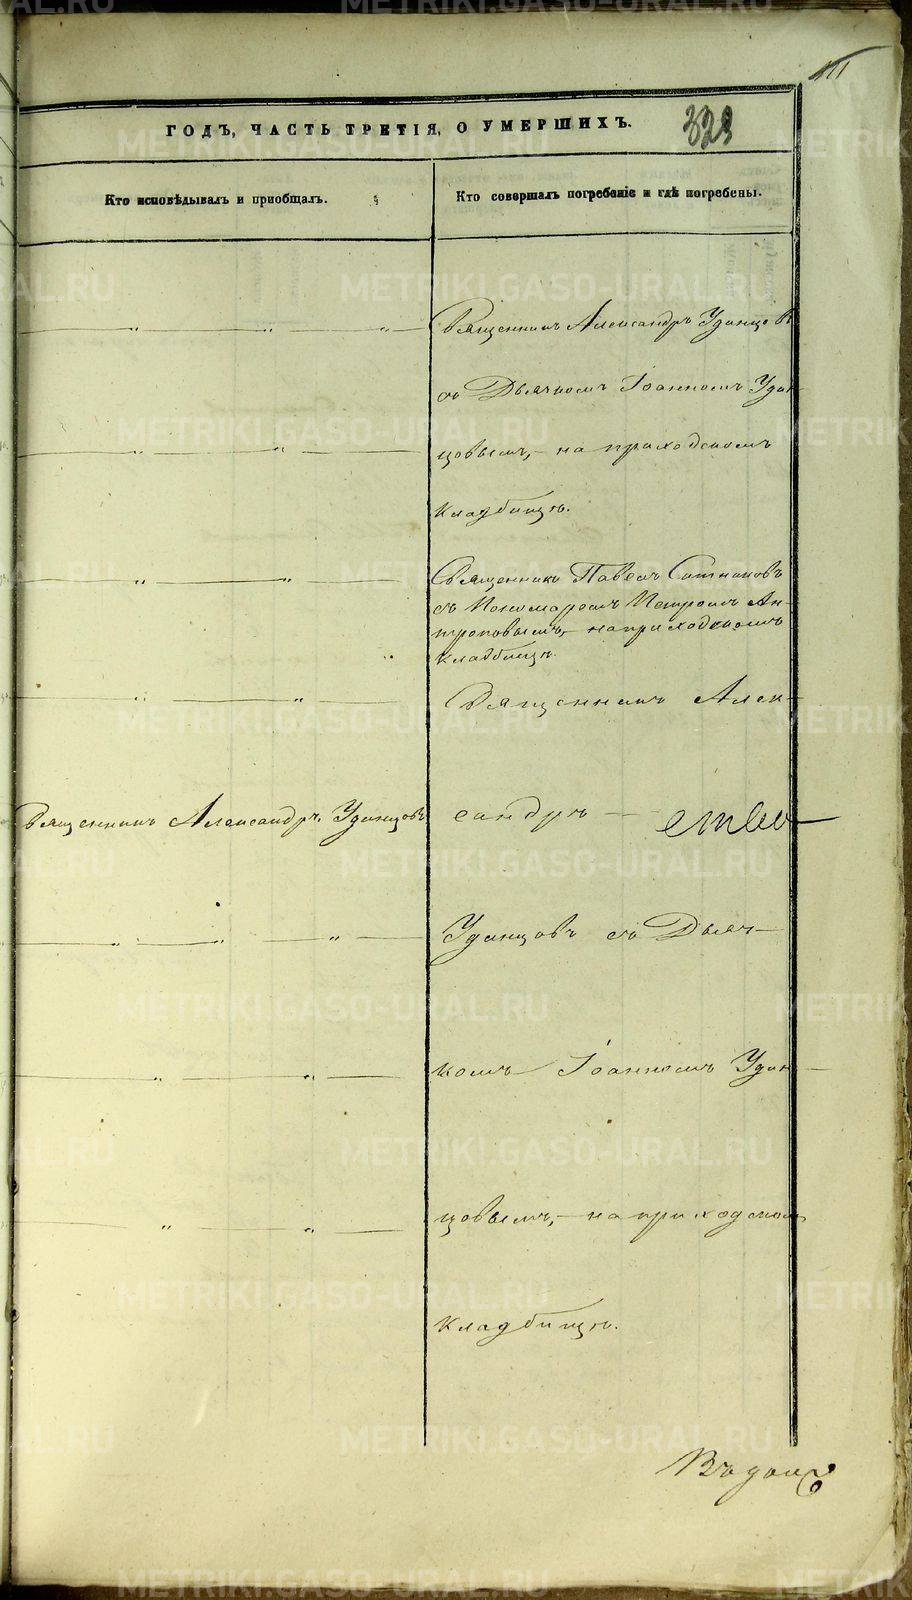 111
ГОДЪ, ЧАСТЬ ТРЕТІЯ, О УМЕРШИХЪ.
329
Кто исповѣдывалъ и приобщалъ.
Кто совершалъ погребеніе и гдѣ погребены.
Священникъ Александръ Удинцовъ
съ Дьячкомъ Іоанномъ Удин-
цовымъ, - на приходскомъ
кладбищѣ.
Священникъ Павелъ Ситниковъ
съ Пономаремъ Петромъ Ан-
троповымъ, на приходскомъ
кладбищѣ.
Священникъ Алек-
Священникъ Александръ Удинцовъ
сандръ
Удинцовъ съ Дьяч-
комъ Іоанномъ Удин-
цовымъ, - на приходском
кладбищѣ.
METRIKI.GASO-URAL.RU